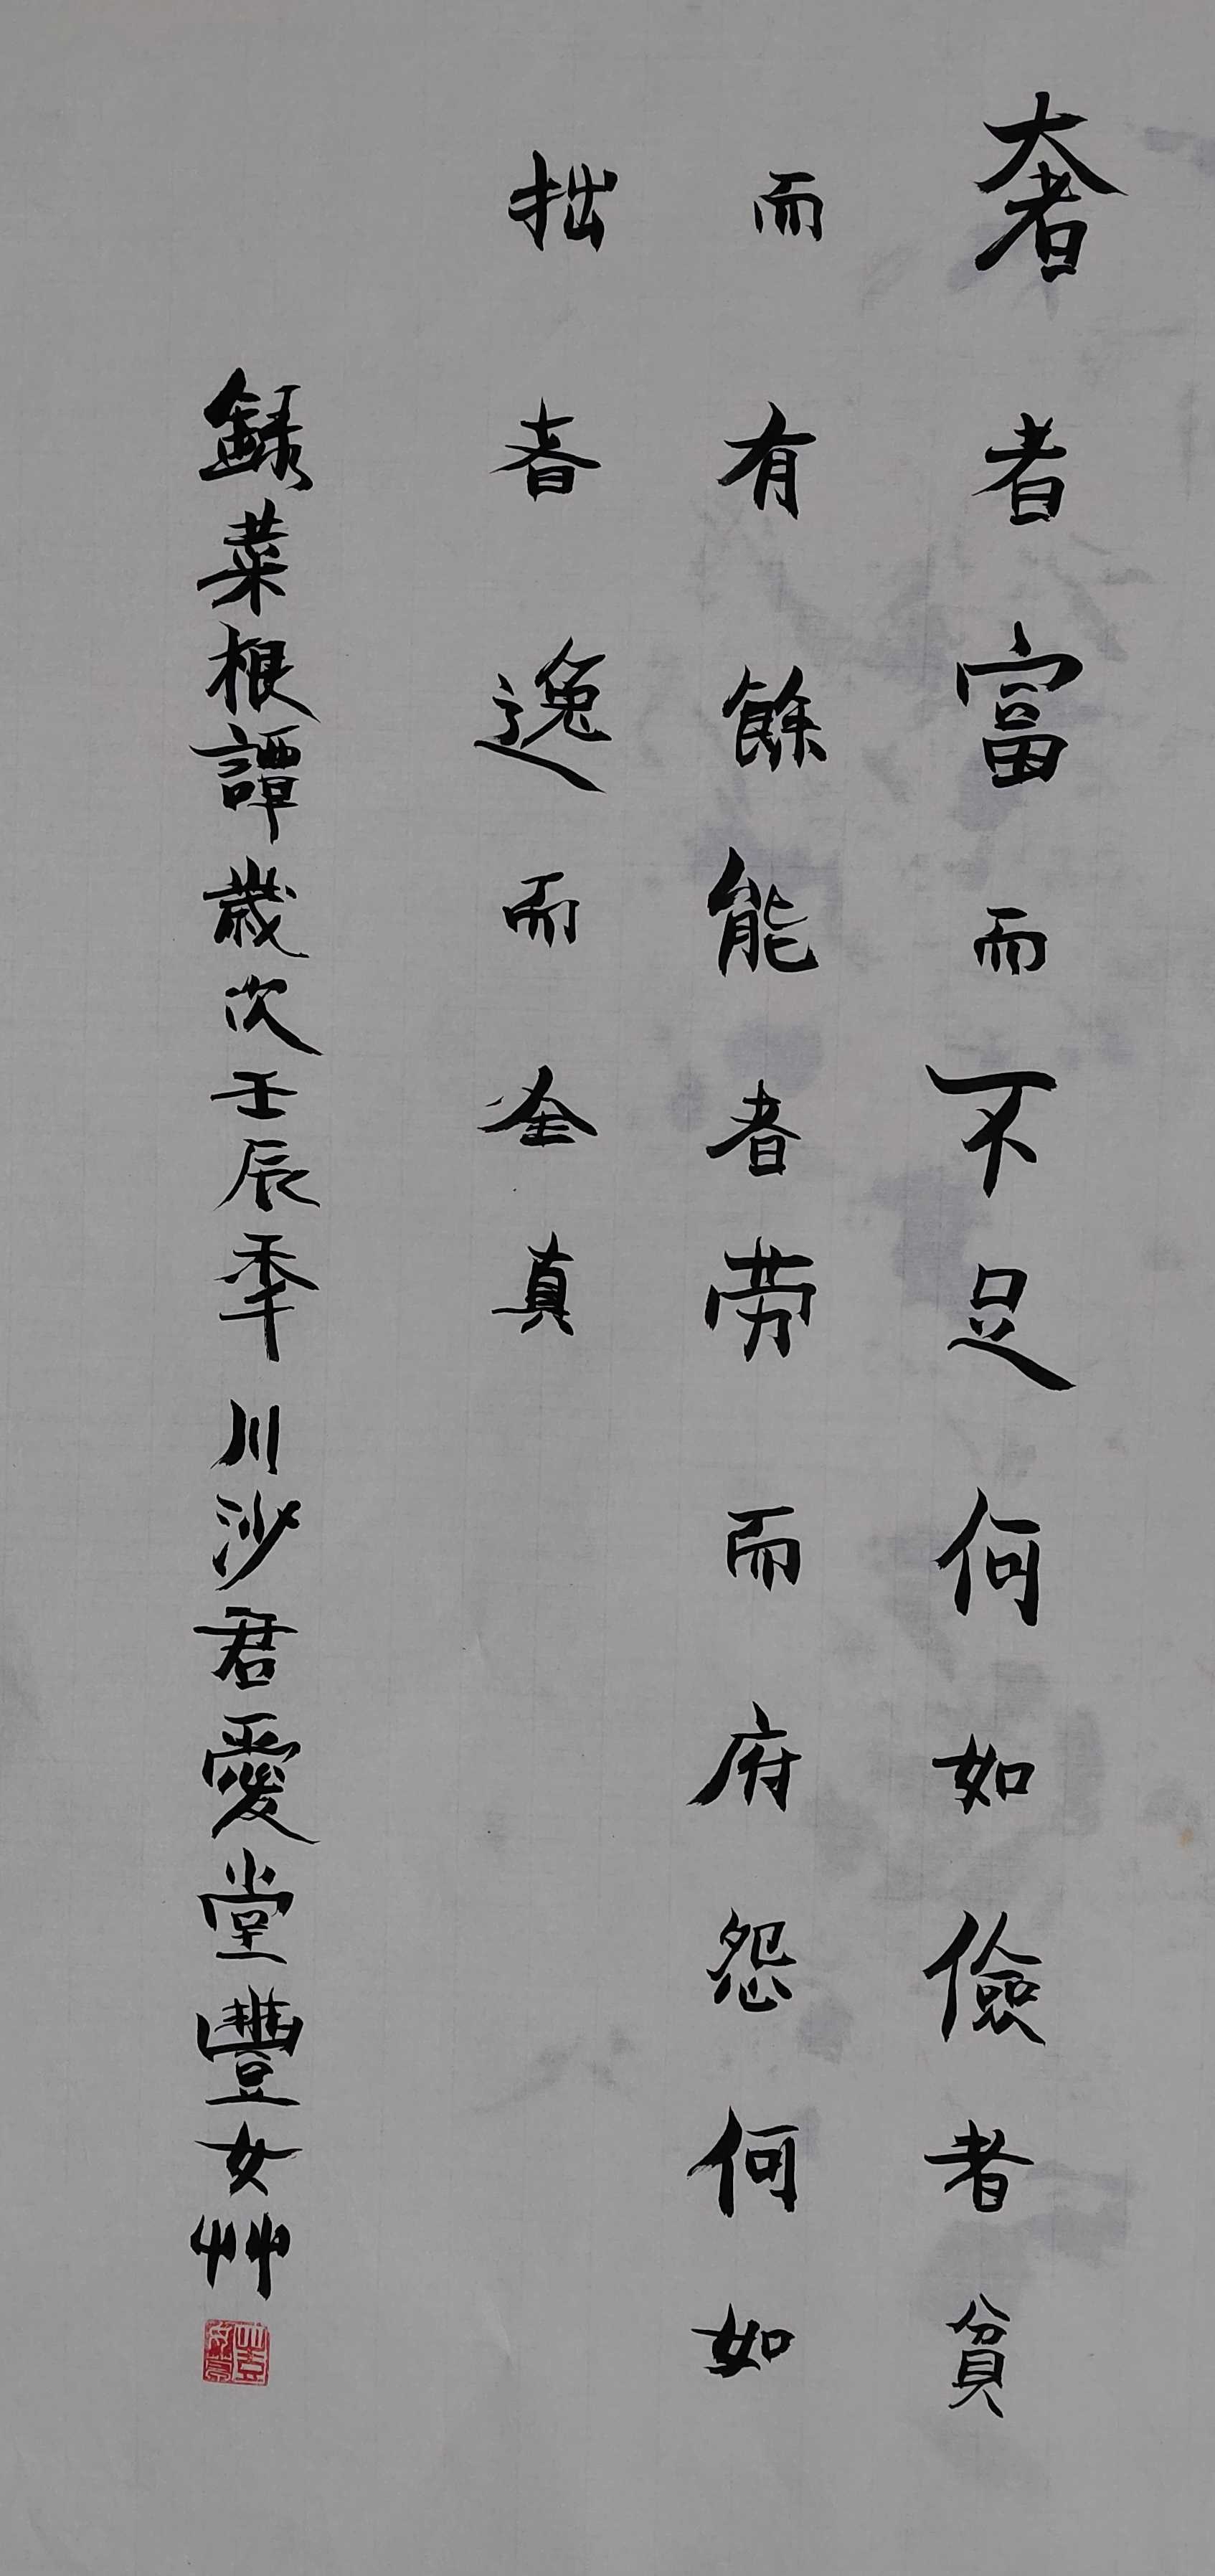 奢者富而不足何如儉者貧
而有餘能者劳而府怨何如
拙者逸而全真
録菜根譚歲次壬辰秊川沙君愛堂豐女艸